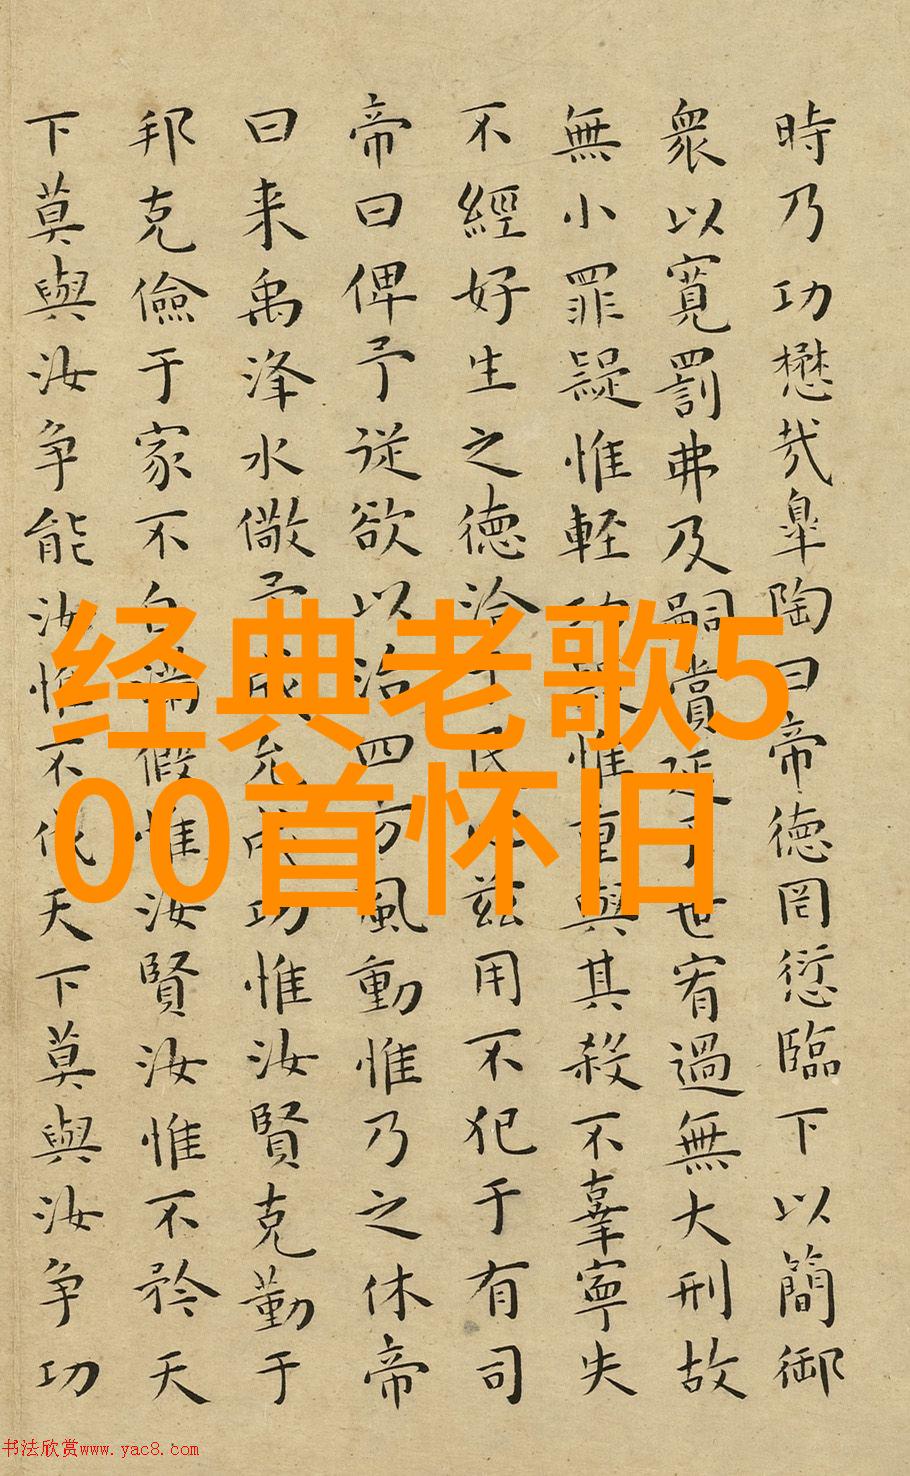 時乃功懋哉皐陶曰帝德罔愆臨下以簡御
衆以寬罰弗及嗣賞延于世宥過無大刑故
無小罪疑惟輕功疑惟重與其殺不辜寧失
不經好生之德洽于民心兹用不犯于有司
帝曰俾予從欲以治四方風動惟乃之休帝
曰来禹洚水儆予成允成功惟汝賢克勤于
邦克儉于家不自滿假惟汝賢汝惟不矜天
下莫與汝争能汝惟不伐天下莫與汝争功
经典老歌5
00首怀旧
书法欣赏www.yac8.com